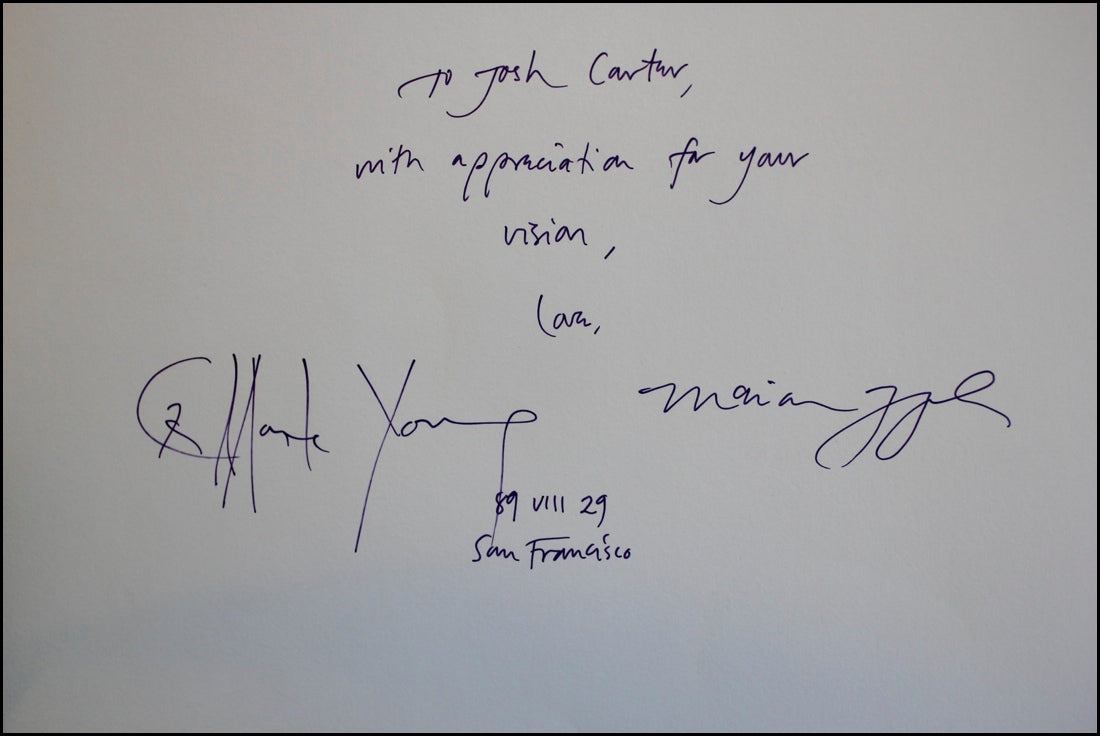 To Josh Carter,
with appreciation for your
vision,
Love,
La Monte Young Marian Zazeela
89 VIII 29
San Francisco